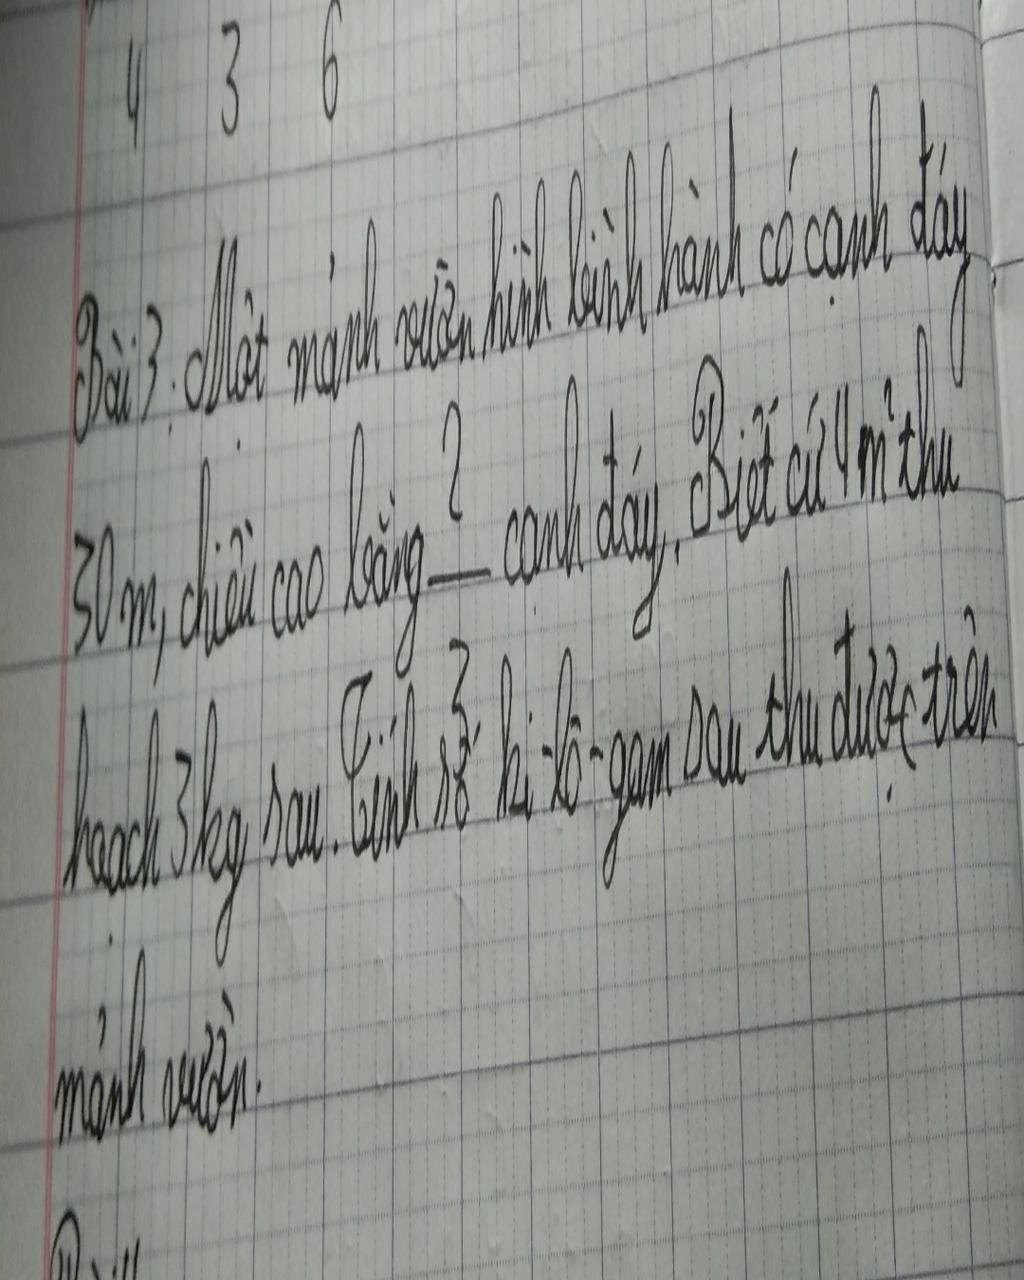 4 3 6
Bài 3. Một mảnh vườn hình bình hành có cạnh đáy
30 m, chiều cao bằng 2/3 cạnh đáy. Biết cứ 4 m² thu
hoạch 3 kg rau. Tính số ki-lô-gam rau thu được trên
mảnh vườn.